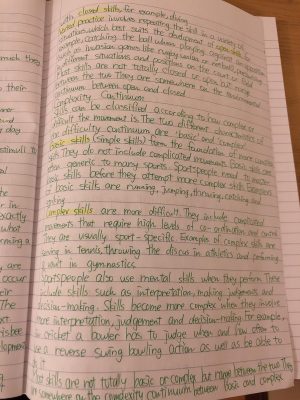 with closed skills, for example, diving.
Varied practice involves repeating the skill in a variety of
situations which best suits the development of open skills for
example, catching the ball when playing against opposition
such as invasion games like rugby under or over
different situations and positions on the court or pitch
Most skills are not totally closed or open, but range
between the two. They are somewhere on the environmental
continuum between open and closed
Complexity Continuum
Skills can be classified according to how complex or
difficult the movement is. The two different characteristics of
the difficulty continuum are 'basic' and 'complex'
Basic skills (simple skills) form the foundation of more complex
skills. They do not include complicated movement. Basic skills are
often generic to many sports. Sportspeople need to master
basic skills before they attempt more complex skills. Examples
of basic skills are running, jumping, throwing, catching and
striking
Complex skills are more difficult. They include complicated
movements that require high levels of co-ordination and control
They are usually sport-specific. Examples of complex skills are
serving in tennis, throwing the discus in athletics and performing
a vault in gymnastics.
Sportspeople also use mental skills when they perform. These
include skills such as interpretation, making judgements, and
decision-making. Skills become more complex when they involve
more interpretation, judgement and decision-making for example,
in cricket a bowler has to judge when and how often to
use a reverse swing bowling action as well as be able to
do it
Most skills are not totally basic or complex but range between the two. They
are somewhere on the complexity continuum between basic and complex